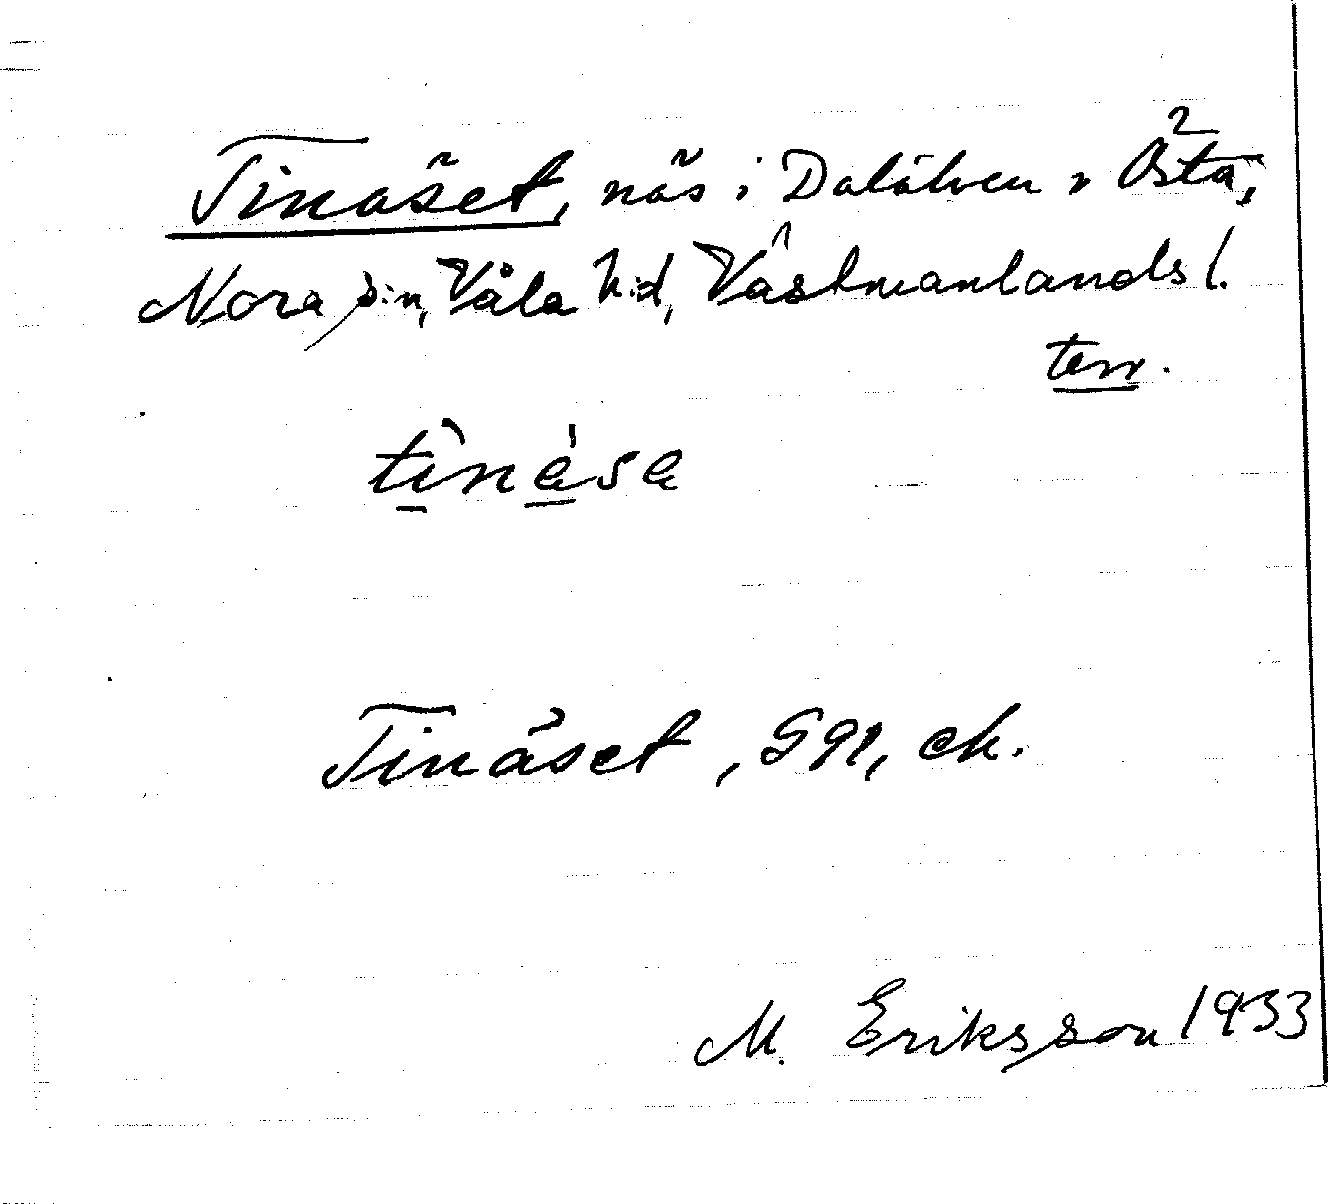 Tinäset, näs i Dalälven v Östa,
Nora s:n, Våla h:d, Västmanlands l.
terr.
tìnä́sa
Tinäset, S91, ek.
M. Eriksson 1933